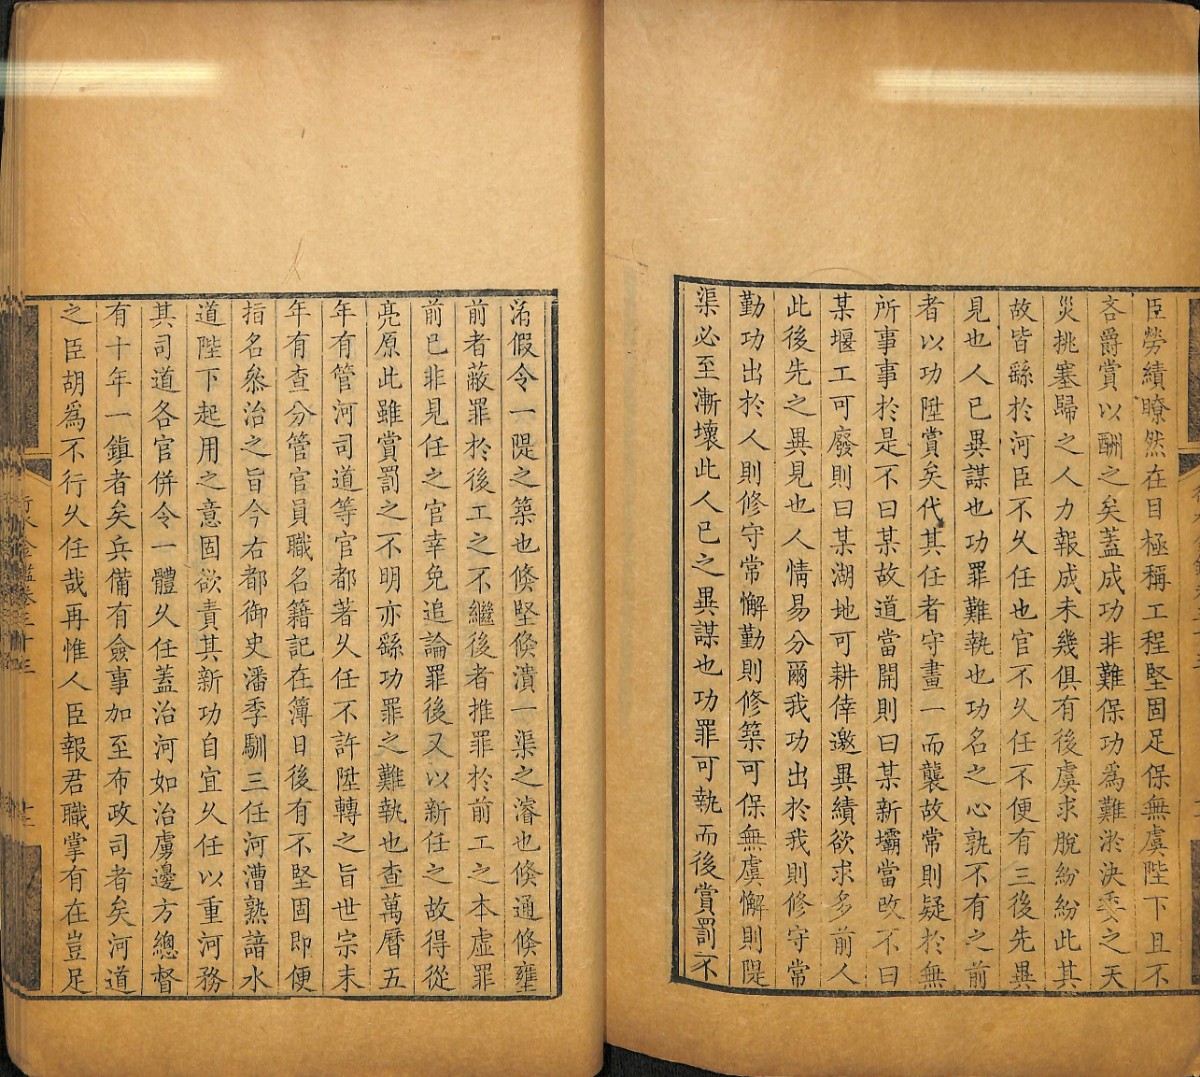 臣勞績瞭然在目極稱工程堅固足保無虞陛下且不
吝爵賞以酬之矣蓋成功非難保功爲難淤決委之天
災挑塞歸之人力報成未幾俱有後虞求脫紛紛此其
故皆繇於河臣不久任也官不久任不便有三後先異
見也人已異謀也功罪難執也功名之心孰不有之前
者以功陞賞矣代其任者守畫一而襲故常則疑於無
所事事於是不曰某故道當開則曰某新壩當改不曰
某堰工可廢則曰某湖地可耕倖邀異績欲求多前人
此後先之異見也人情易分爾我功出於我則修守常
勤功出於人則修守常懈勤則修築可保無虞懈則隄
渠必至漸壞此人已之異謀也功罪可執而後賞罰不
淆假令一隄之築也倏堅倏潰一渠之濬也倏通倏壅
前者蔽罪於後工之不繼後者推罪於前工之本虛罪
前已非見任之官幸免追論罪後又以新任之故得從
亮原此雖賞罰之不明亦繇功罪之難執也查萬曆五
年有管河司道等官都著久任不許陞轉之旨世宗末
年有查分管官員職名籍記在簿日後有不堅固即便
指名叅治之旨今右都御史潘季馴三任河漕熟諳水
道陛下起用之意固欲責其新功自宜久任以重河務
其司道各官併令一體久任蓋治河如治虜邊方總督
有十年一鎮者矣兵備有僉事加至布政司者矣河道
之臣胡爲不行久任哉再惟人臣報君職掌有在豈足
行水金鑑卷三十三
十三